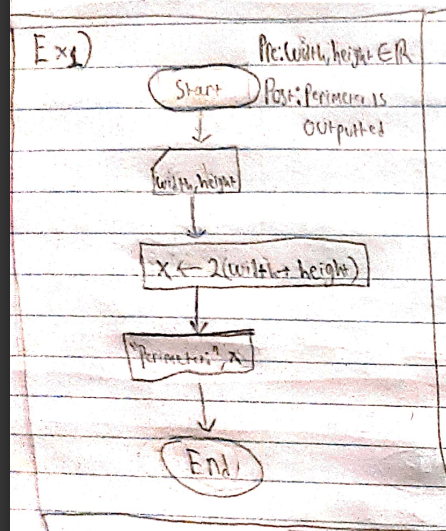 Ex1)
Pre: width, height ∈ ℝ
Start
Post: Perimeter is
outputted
width, height
x ← 2(width + height)
"Perimeter:", x
End